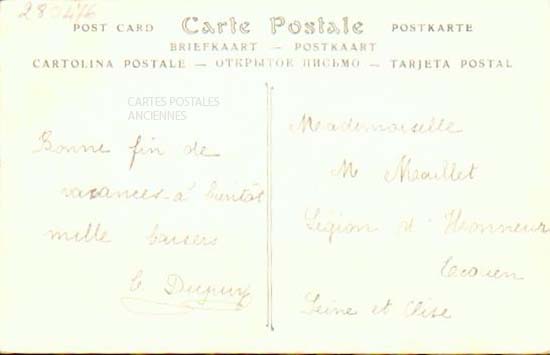 280476
POST CARD Carte Postale POSTKARTE
BRIEFKAART — POSTKAART
CARTOLINA POSTALE — ОТКРЫТОЕ ПИСЬМО — TARJETA POSTAL
CARTES POSTALES
ANCIENNES
Bonne fin de
vacances à bientôt
mille baisers
C Dupuy
Mademoiselle
M Maillet
Légion d'Honneur
Ecouen
Seine et Oise